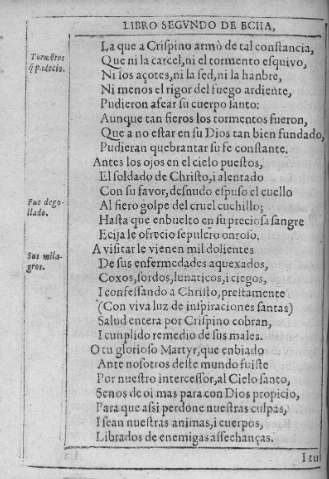 LIBRO SEGVNDO DE ECIIA,
La que a Crispino armò de tal constancia,
Tormẽtos
q̃ padecio.
Que ni la carcel, ni el tormento esquivo,
Ni los açotes, ni la sed, ni la hanbre,
Ni menos el rigor del fuego ardiente,
Pudieron afear su cuerpo santo:
Aunque tan fieros los tormentos fueron,
Que a no estar en su Dios tan bien fundado,
Pudieran quebrantar su fe constante.
Antes los ojos en el cielo puestos,
El soldado de Christo, i alentado
Con su favor, desnudo espuso el cuello
Fue dego-
llado.
Al fiero golpe del cruel cuchillo;
Hasta que enbuelto en su preciosa sangre
Ecija le ofrecio sepulcro onroso.
Sus mila-
gros.
A visitar le vienen mil dolientes
De sus enfermedades aquexados,
Coxos, sordos, lunaticos, i ciegos,
I confessando a Christo, prestamente
(Con viva luz de inspiraciones santas)
Salud entera por Crispino cobran,
I cunplido remedio de sus males.
O tu glorioso Martyr, que enbiado
Ante nosotros deste mundo fuiste
Por nuestro intercessor, al Cielo santo,
Senos de oi mas para con Dios propicio,
Para que assi perdone nuestras culpas,
I sean nuestras animas, i cuerpos,
Librados de enemigas assechanças.
I tu